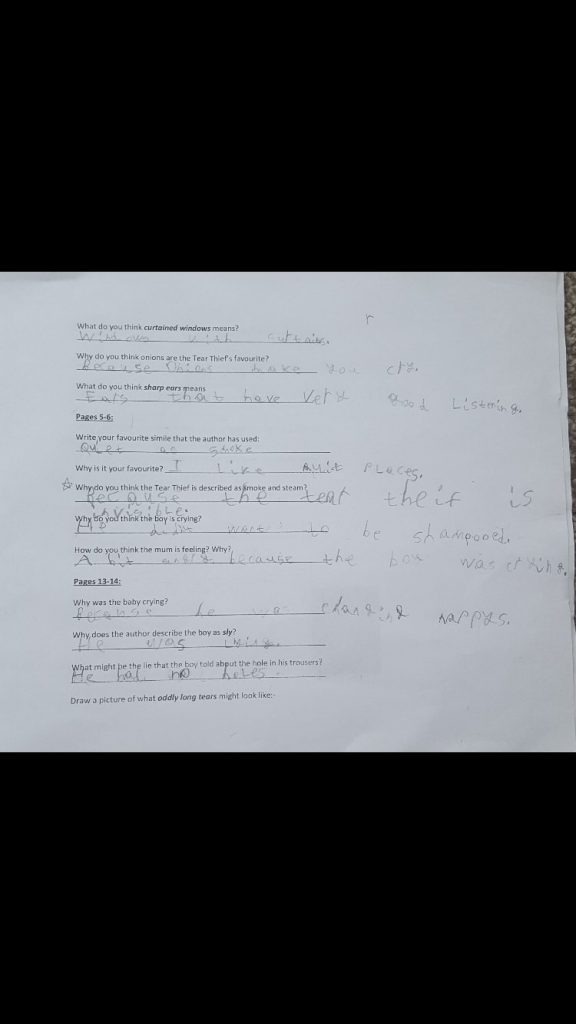 r
What do you think curtained windows means?
Windows with curtains.
Why do you think onions are the Tear Thief's favourite?
Because Onions make you cry.
What do you think sharp ears means
Ears that have very good Listening.
Pages 5-6:
Write your favourite simile that the author has used:
Quiet as smoke
Why is it your favourite? I like quit PLaces.
Why do you think the Tear Thief is described as smoke and steam?
Because the tear theif is
invisible.
Why do you think the boy is crying?
He didnt want to be shampooed.
How do you think the mum is feeling? Why?
A bit angry because the boy was crying.
Pages 13-14:
Why was the baby crying?
Because he was changing nappys.
Why does the author describe the boy as sly?
He was Lying.
What might be the lie that the boy told about the hole in his trousers?
He had no holes
Draw a picture of what oddly long tears might look like:-